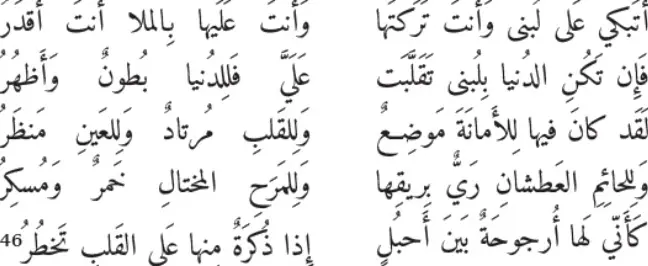 أَتَبكي عَلى لُبنى وَأَنتَ تَرَكتَها وَأَنتَ عَلَيها بِالملا أَنتَ أَقدَرُ
فَإِن تَكُنِ الدُنيا بِلُبنى تَقَلَّبَت عَلَيَّ فَلِلدُنيا بُطونٌ وَأَظهُرُ
لَقَد كانَ فيها لِلأَمانَةِ مَوضِعٌ وَلِلقَلبِ مُرتادٌ وَلِلعَينِ مَنظَرُ
وَلِلحائِمِ العَطشانِ رَيٌّ بِريقِها وَلِلمَرَحِ المختالِ خَمرٌ وَمُسكِرُ
كَأَنّي لَها أُرجوحَةٌ بَينَ أَحبُلٍ إِذا ذُكرَةٌ مِنها عَلى القَلبِ تَخطُرُ46